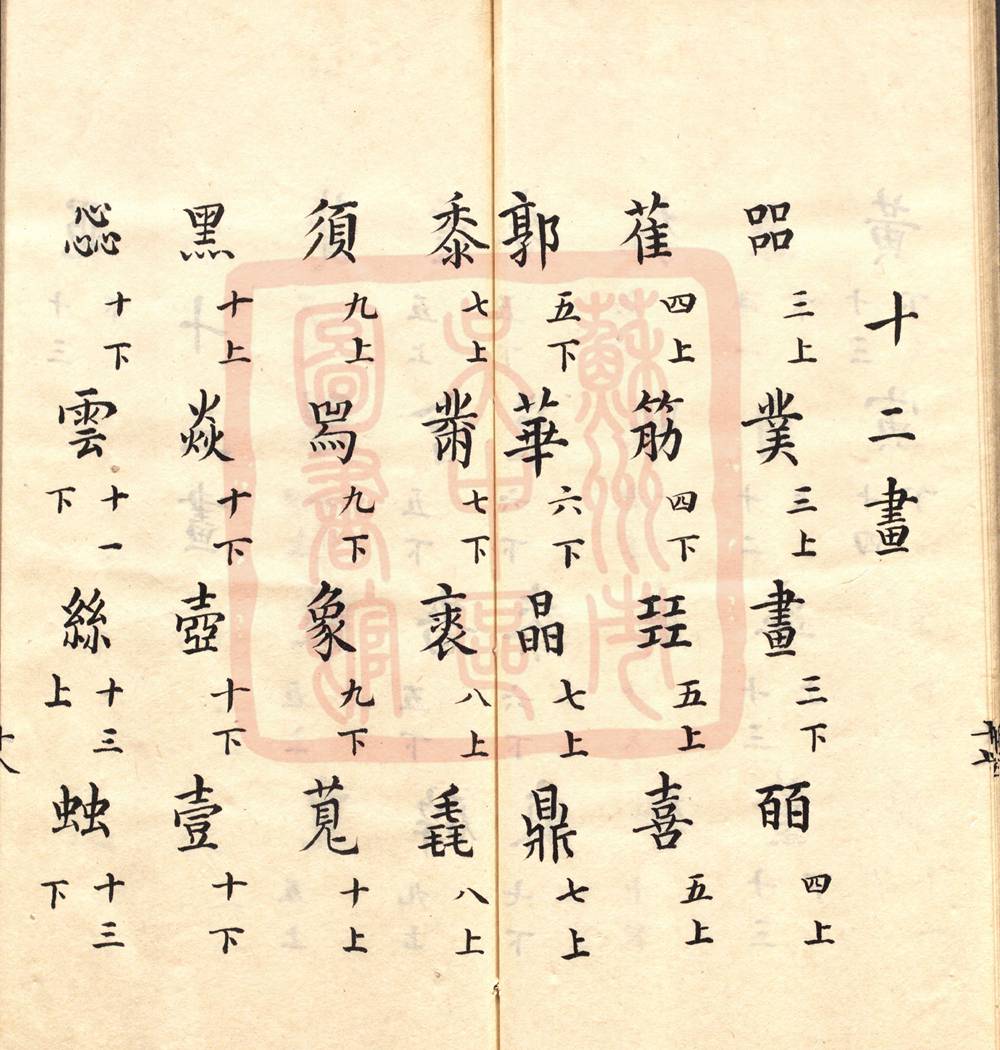 十二畫
㗊 三上 菐 三上 畫 三下 皕 四上
萑 四上 筋 四下 㠭 五上 喜 五上
郭 五下 華 六下 晶 七上 鼎 七上
黍 七上 黹 七下 裘 八上 毳 八上
須 九上 𤉡 九下 象 九下 萈 十上
黑 十上 焱 十下 壺 十下 壹 十下
惢 十下 雲 十一下 絲 十三上 䖵 十三下
蘇州市
吳中區
圖書館